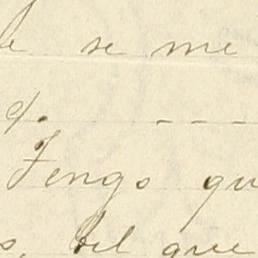 se me
- - -
Tengo qu
del que